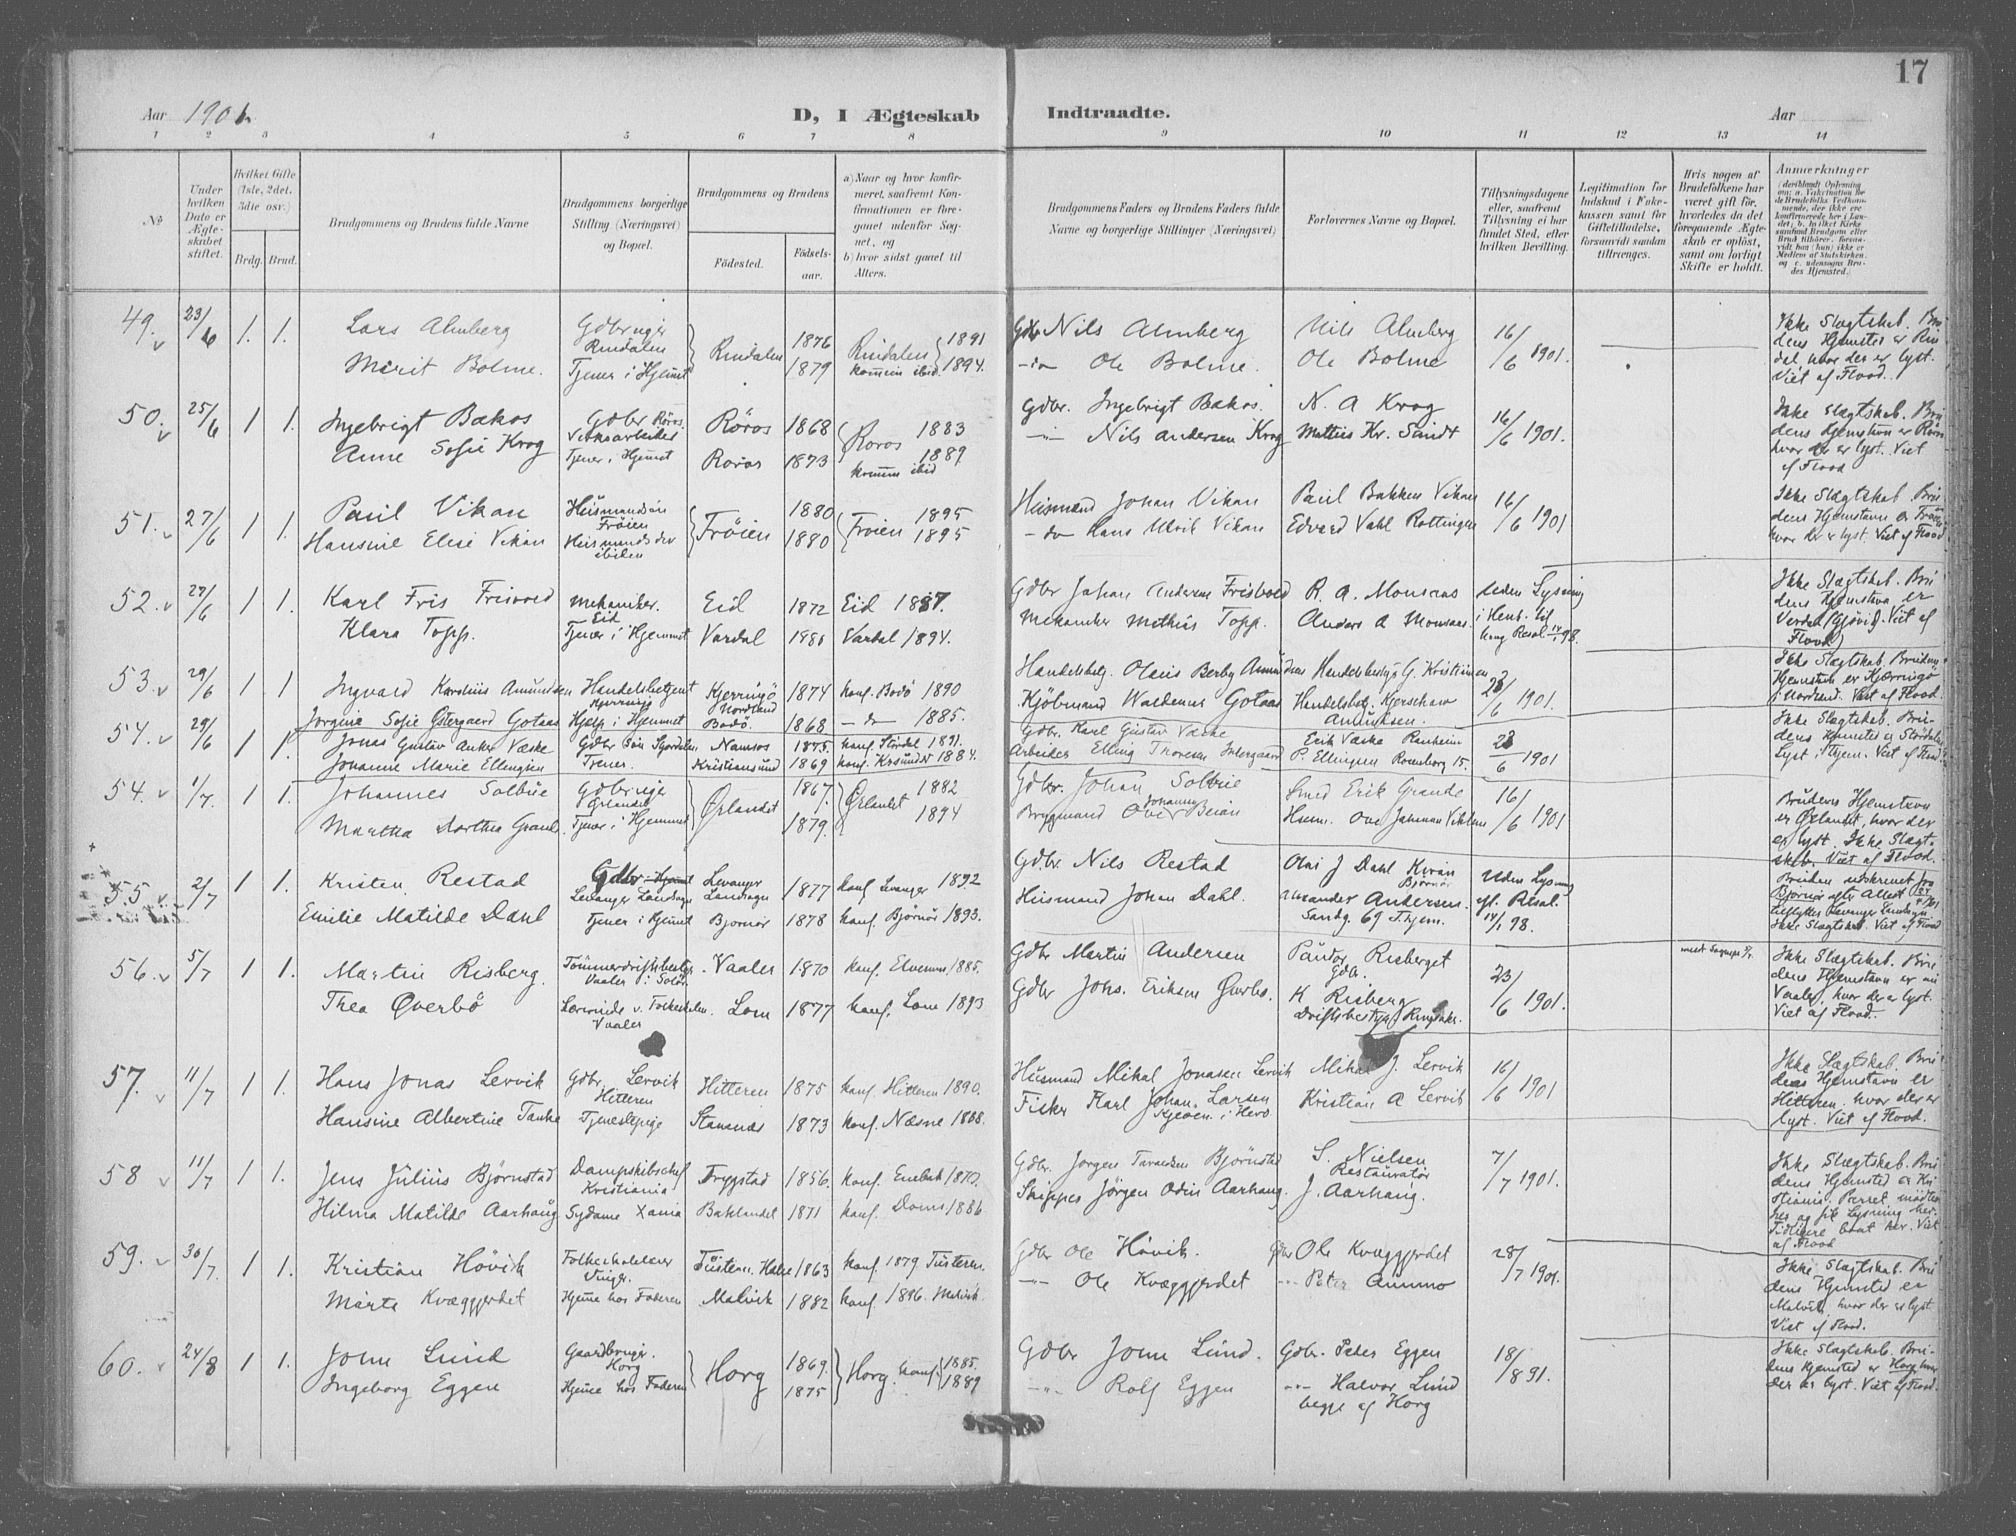 17
Aar 1901.
D, I Ægteskab Indtraadte.
Aar
1 2 3 4 5 6 7 8 9 10 11 12 13 14
№
Under hvilken Dato er Ægteskabet stiftet.
Hvilket Gifte (1ste, 2det, 3die osv.)
Brdg. Brud.
Brudgommens og Brudens fulde Navne
Brudgommens borgerlige Stilling (Næringsvei) og Bopæl.
Brudgommens og Brudens
Fødested.
Fødsels-aar.
a) Naar og hvor konfirmeret, saafremt Konfirmationen er foregaaet udenfor Sognet, og
b) hvor sidst gaaet til Alters.
Brudgommens Faders og Brudens Faders fulde Navne og borgerlige Stillinger (Næringsvei)
Forlovernes Navne og Bopæl.
Tillysningsdagene eller, saafremt Tillysning ei har fundet Sted, efter hvilken Bevilling.
Legitimation for Indskud i Enkekassen samt for Giftetilladelse, forsaavidt saadan tiltrænges.
Hvis nogen af Brudefolkene har været gift før, hvorledes da det foregaaende Ægteskab er opløst, samt om lovligt Skifte er holdt.
Anmærkninger
49. 23/6 1. 1. Lars Almberg Gdbruger Rindalen Rindalen 1876 Rindalen 1891 Gdbr Nils Almberg Nils Almberg 16/6 1901.
Marit Bolme. Tjener i Hjemmet 1879 komm ibid. 1894. -do Ole Bolme. Ole Bolme
Ikke Slægtskab. Brudens Hjemsted er Rindal, hvor der er lyst. Viet af Flood.
50. 25/6 1 1. Ingebrigt Bakos Gdbr Røros. Verksarbeider Røros 1868 Roros 1883 Gdbr. Ingebrigt Bakos. N. A Krog 16/6 1901.
Anne Sofie Krog Tjener i Hjemmet Roros 1873 1889 komm ibid -"- Nils Andersen Krog Mathias Kr. Smidt
Ikke Slægtskab. Brudens Hjemstavn er Røros hvor der er lyst. Viet af Flood
51. 27/6 1 1. Paul Vikan Husmandsøn Frøien Frøien 1880 Frøien 1895 Husmand Johan Vikan Paul Bakken Vikan 16/6 1901
Hansine Elise Vikan Husmandsdtr ibidem 1880 1895 -do Hans Ulrik Vikan Edvard Vahl Rottingen
Ikke Slægtskab. Brudens Hjemstavn er Frøien hvor der er lyst. Viet af Flood
52. 27/6 1 1. Karl Fris Frisvold Mekaniker. Eid Eid 1872 Eid 1887. Gdbr Johan Andersen Frisvold R. A. Monsaas Uden Lysning
Klara Topp. Tjener i Hjemmet Vardal 1880 Vardal 1894. Mekaniker Mathias Topp. Anders A Monsaas i Henh. til kong Resol 14/1 98.
Ikke Slægtskab. Brudens Hjemstavn er Vardal (Gjøvik). Viet af Flood
53. 29/6 1 1 Ingvard Karolius Amundsen Handelsbetjent Kjerringø Kjerringø Nordland 1874 konf. Bodø 1890 Handelsbetj. Olaus Berby Amundsen Handelsbestyr G. Kristiansen 23/6 1901.
Jørgine Sofie Østergaard Gotaas Hjelp i Hjemmet Bodø. 1868 -do 1885. Kjøbmand Waldemar Gotaas Handelsbetj. Kjerschow Amundsen.
Ikke Slægtskab. Brudens Hjemstavn er Kjærringø i Nordland. Viet af Flood.
54. 29/6 1 1. Jonas Gustav Anker Væske Gdbr Søn Stjørdalen Namsos 1875. konf. Størdal 1891. Gdbr. Karl Gustav Væske Erik Væske Ranheim 23/6 1901
Johanne Marie Ellingsen Kristiansund 1869 konf. Krsund 1884. Arbeider Elling P. Ellingsen Rosenborg 15.
Ikke Slægtskab. Brudens Hjemsted er Størdalen Lyst i Thjem. Viet af Flood.
54. 1/7. 1 1. Johannes Solbue Gdbruger Ørlandet Ørlandet 1867. Ørlandet 1882 Gdbr. Johan Solbue Smed Erik Grande 16/6 1901
Martha Dorthea Grande. Tjener i Hjemmet 1879. 1894 Brygmand Ove Johannes Beian Husm. Ove Johnsen Viklem
Brudens Hjemstavn er Ørlandet, hvor der er lyst. Ikke Slægtskab. Viet af Flood.
55. 2/7 1 1. Kristen Restad Gdbr Levanger Landsogn Levanger Landsogn 1877 konf. Levanger 1892 Gdbr Nils Restad Olai J Dahl Bjørnør Uden Lysning
Emilie Matilde Dahl Tjener i Hjemmet Bjørnør 1878 konf. Bjørnør 1893. Husmand Johan Dahl. Alexander Andersen. Sandg. 69 Thjem. gl. Resol. 14/1 98.
Bruden udskrevet fra Bjørnør efter Attest tilflyttet Levanger Landsogn Ikke Slægtskab. Viet af Flood
56. 5/7 1 1. Martin Risberg. Tømmerdriftsbestyr. Vaaler i Solør Vaaler 1870 konf. Elverum 1885. Gdbr Martin Andersen Paudor Risberget Gdbr. 23/6 1901.
Thea Øverbö Lærerinde v. Folkeskolen Vaaler Lom 1877 konf. Lom 1893 Gdbr Johs. Eriksen Øverbø. K Risberg Driftsbestyr. Ringsaker.
Ikke Slægtskab. Brudens Hjemstavn er nu Vaaler, hvor der er lyst. Viet af Flood.
57. 11/7 1 1. Hans Jonas Lervik Gdbr. Lervik Hitteren Hitteren 1875 konf. Hitteren 1890. Husmand Mikal Jonasen Lervik Mikal J. Lervik 16/6 1901
Hansine Albertine Tanke Tjenestepige Stamnæs 1873 konf. Næsne 1888. Fisker Karl Johan Larsen Kristian A Lervik
Ikke Slægtskab. Brudens Hjemstavn er Hitteren. hvor der er lyst. Viet af Flood.
58 11/7 1 1. Jens Julius Bjørnstad Dampskibschef Kristiania Trygstad 1856. konf. Enebak 1870. Gdbr. Jørgen Bjørnstad S. Nielsen Restauratør 7/7 1901.
Hilma Matilde Aarhaug Sydame Xania Baklandet 1871 konf. Doms 1886 Skipper Jørgen Odin Aarhaug. J. Aarhaug.
Ikke Slægtskab. Brudens Hjemsted er Kristiania. Parret mødtes og fik Lysning her. Tidligere boat her. Viet af Flood
59. 30/7. 1 1. Kristian Høvik Folkeskolelærer 1863 konf. 1879 Tusteren. Gdbr Ole Høvik. Gdbr Ole Kvæggjerdet 28/7 1901.
Marta Kvæggjerdet Hjeme hos Faderen Malvik 1882 konf. 1896. Malvik. -"- Ole Kvæggjerdet -"- Peter Aunmo
Ikke Slægtskab. Brudens Hjemsted er Malvik, hvor der er lyst. Viet af Flood.
60. 24/8 1 1. John Lund Gaardbruger. Horg Horg 1869. Horg konf. 1885. Gdbr John Lund. Gdbr. Peter Eggen 18/8 91.
Ingeborg Eggen Hjeme hos Faderen 1875 1889 -"- Rolf Eggen -"- Halvor Lund begge af Horg
Ikke Slægtskab. Brudens Hjemsted er Horg hvor der er lyst. Viet af Flood.